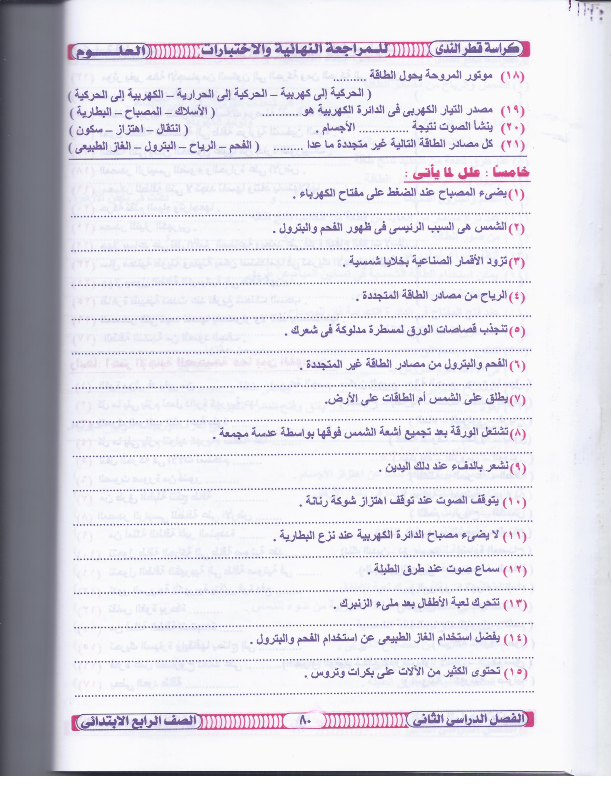 كراسة قطر الندى للمراجعة النهائية والاختبارات العلوم
(١٨) موتور المروحة يحول الطاقة .........
( الحركية إلى كهربية – الحركية إلى الحرارية – الكهربية إلى الحركية )
(١٩) مصدر التيار الكهربى فى الدائرة الكهربية هو ............ ( الأسلاك – المصباح – البطارية )
(٢٠) ينشأ الصوت نتيجة .............. الأجسام . ( انتقال – اهتزاز – سكون )
(٢١) كل مصادر الطاقة التالية غير متجددة ما عدا ......... ( الفحم – الرياح – البترول – الغاز الطبيعى )
خامسًا : علل لما يأتى :
(١) يضىء المصباح عند الضغط على مفتاح الكهرباء .
(٢) الشمس هى السبب الرئيسى فى ظهور الفحم والبترول .
(٣) تزود الأقمار الصناعية بخلايا شمسية .
(٤) الرياح من مصادر الطاقة المتجددة .
(٥) تنجذب قصاصات الورق لمسطرة مدلوكة فى شعرك .
(٦) الفحم والبترول من مصادر الطاقة غير المتجددة .
(٧) يطلق على الشمس أم الطاقات على الأرض.
(٨) تشتعل الورقة بعد تجميع أشعة الشمس فوقها بواسطة عدسة مجمعة .
(٩) نشعر بالدفء عند دلك اليدين .
(١٠) يتوقف الصوت عند توقف اهتزاز شوكة رنانة .
(١١) لا يضىء مصباح الدائرة الكهربية عند نزع البطارية .
(١٢) سماع صوت عند طرق الطبلة .
(١٣) تتحرك لعبة الأطفال بعد ملىء الزنبرك .
(١٤) يفضل استخدام الغاز الطبيعى عن استخدام الفحم والبترول .
(١٥) تحتوى الكثير من الآلات على بكرات وتروس .
الفصل الدراسي الثانى ٨٠ الصف الرابع الابتدائى